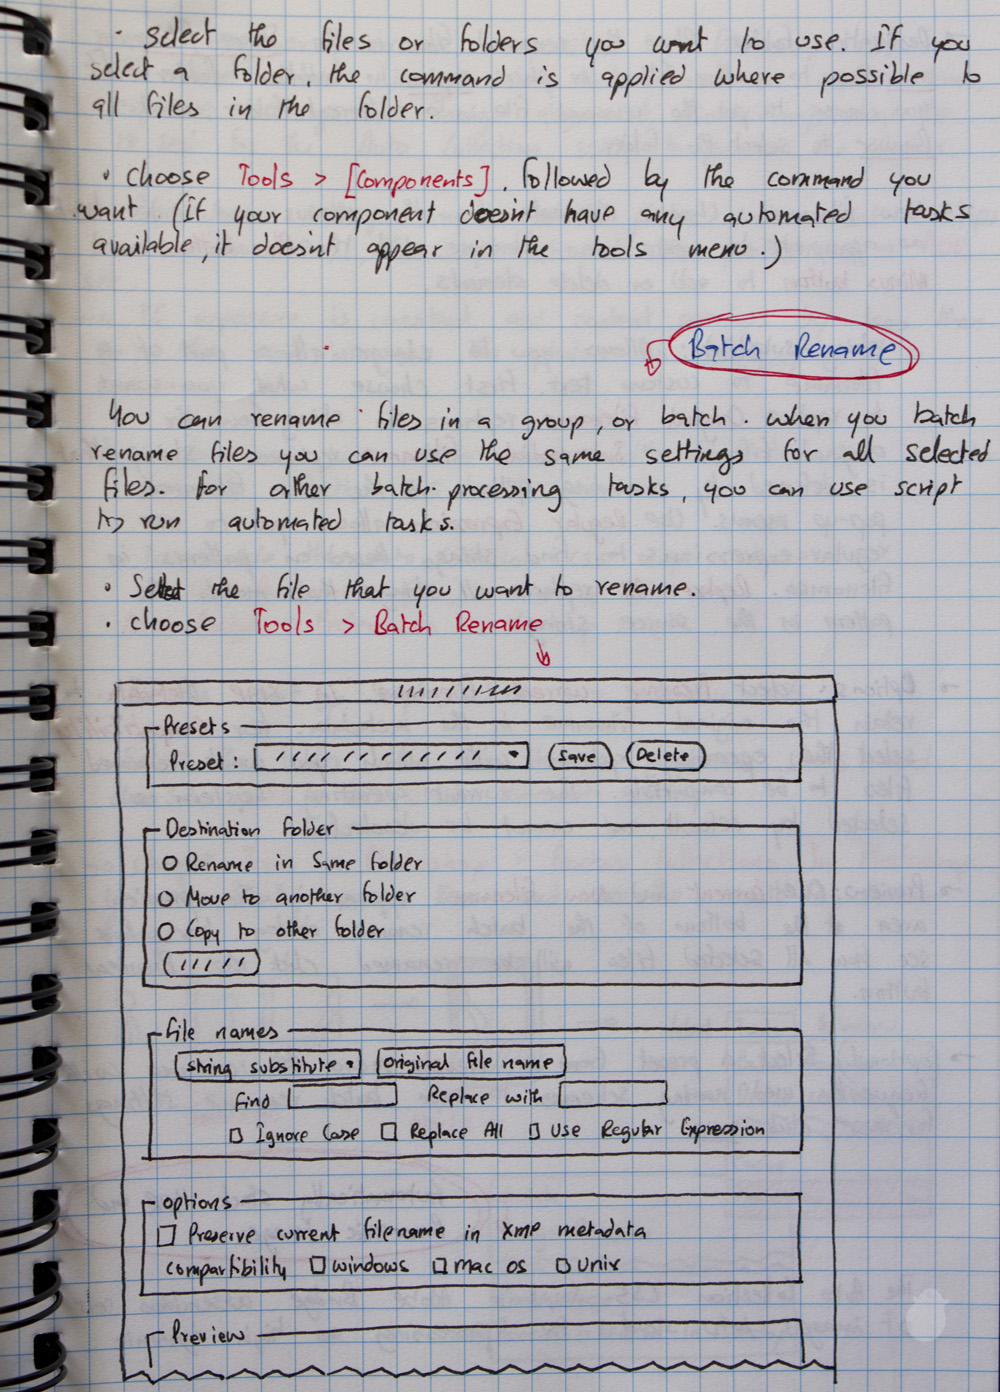 · Select the files or folders you want to use. If you
select a folder, the command is applied where possible to
all files in the folder.
· choose Tools > [Components], followed by the command you
want (If your component doesn't have any automated tasks
available, it doesn't appear in the tools menu.)
Batch Rename
You can rename files in a group, or batch. when you batch
rename files you can use the same settings for all selected
files. for other batch-processing tasks, you can use script
to run automated tasks.
· Select the file that you want to rename.
· choose Tools > Batch Rename
Presets
Preset: Save Delete
Destination folder
Rename in Same folder
Move to another folder
Copy to other folder
File names
string substitute original file name
Find Replace with
Ignore Case Replace All Use Regular Expression
options
Preserve current filename in Xmp metadata
compartibility windows mac os unix
Preview